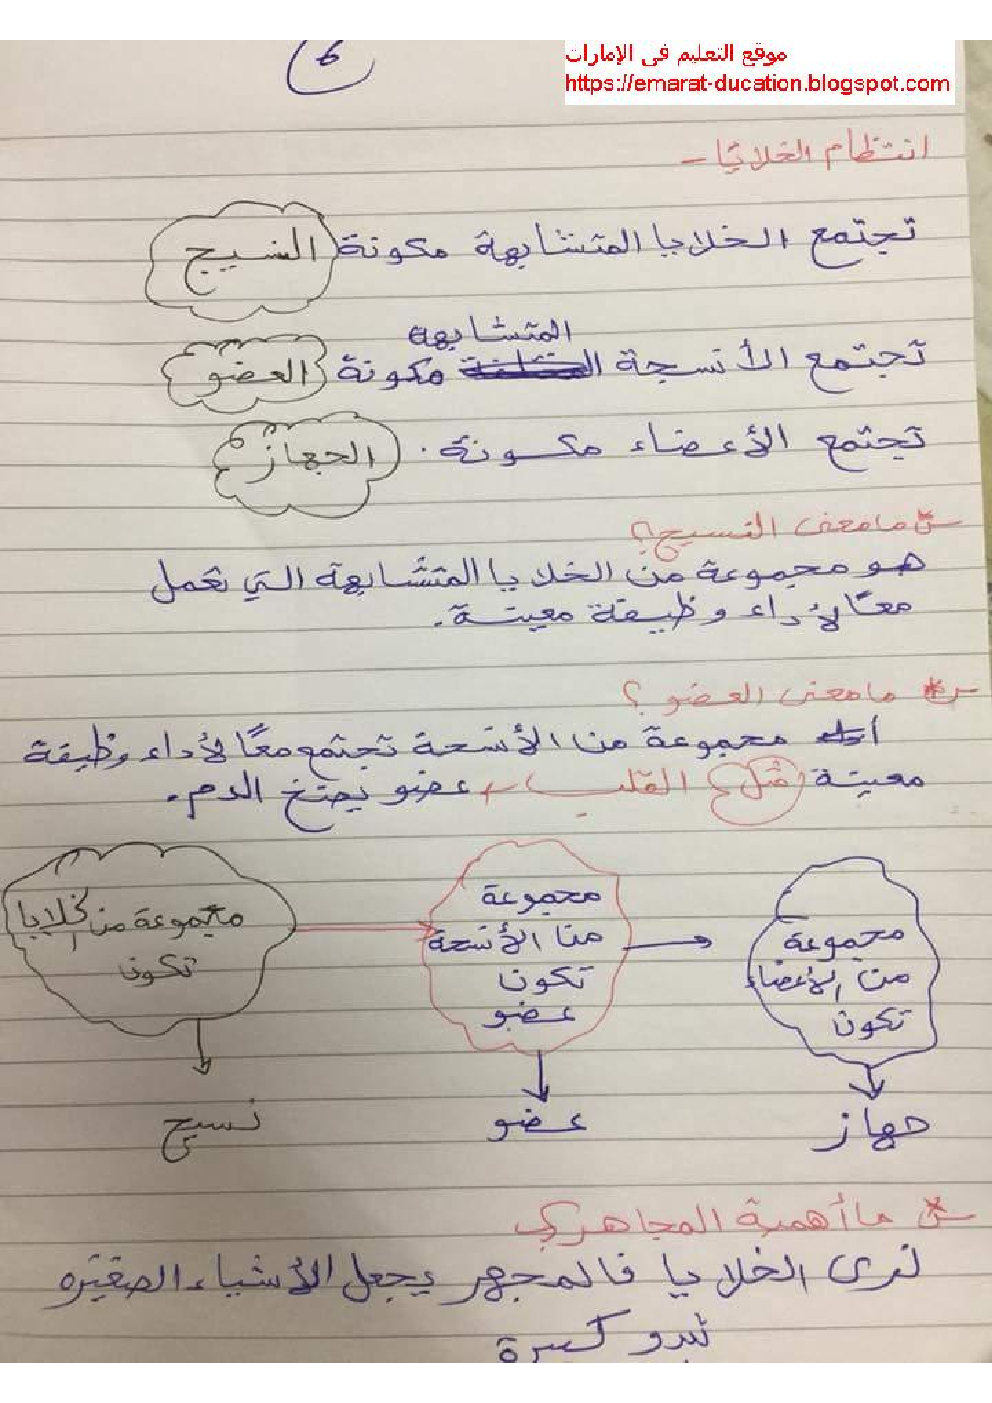 موقع التعليم فى الإمارات
https://emarat-ducation.blogspot.com
6
انتظام الخلايا -
تجتمع الخلايا المتشابهة مكونة النسيج
المتشابهة
تجتمع الأنسجة مكونة العضو
تجتمع الأعضاء مكونة. الجهاز
س* مامعنى النسيج؟
هو مجموعة من الخلايا المتشابهة التي تعمل
معًا لأداء وظيفة معينة.
س* مامعنى العضو؟
مجموعة من الأنسجة تجتمع معًا لأداء وظيفة
معينة مثل القلب عضو يضخ الدم.
مجموعة
من الأعضاء
تكون
جهاز
مجموعة
من الأنسجة
تكون
عضو
عضو
مجموعة من خلايا
تكون
نسيج
س* ما أهمية المجاهر؟
لنرى الخلايا فالمجهر يجعل الأشياء الصغيره
تبدو كبيرة